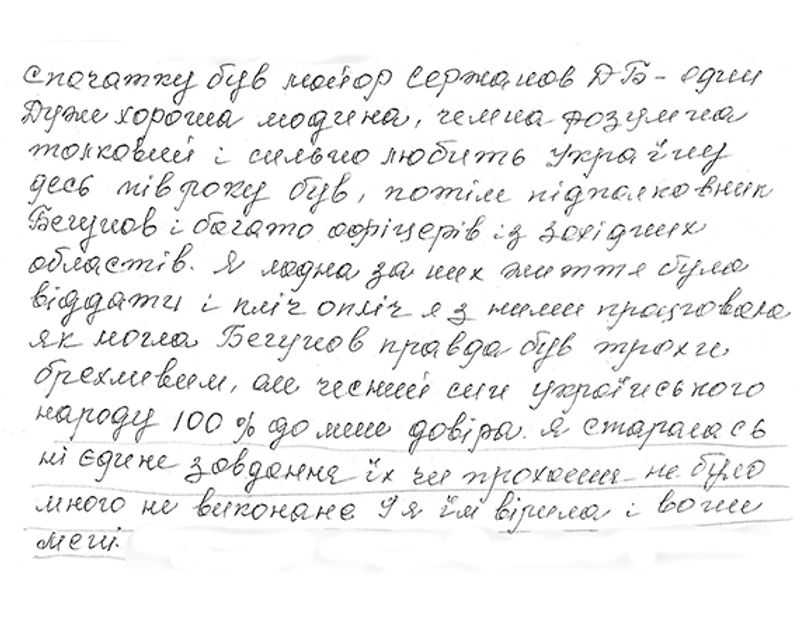 спочатку був майор Сержанов ДБ - один
Дуже хороша людина, чемна розумна
толковий і сильно любить Україну
десь пів року був, потім підполковник
Бегунов і багато офіцерів із західних
областів. Я ладна за них життя була
віддати і пліч опліч я з ними працювала
як могла Бегунов правда був трохи
брехливим, але чесний син українського
народу 100 % до мене довіра. Я старалась
ні єдине завдання їх чи прохання не було
много не виконане І я їм вірила і вони
мені.